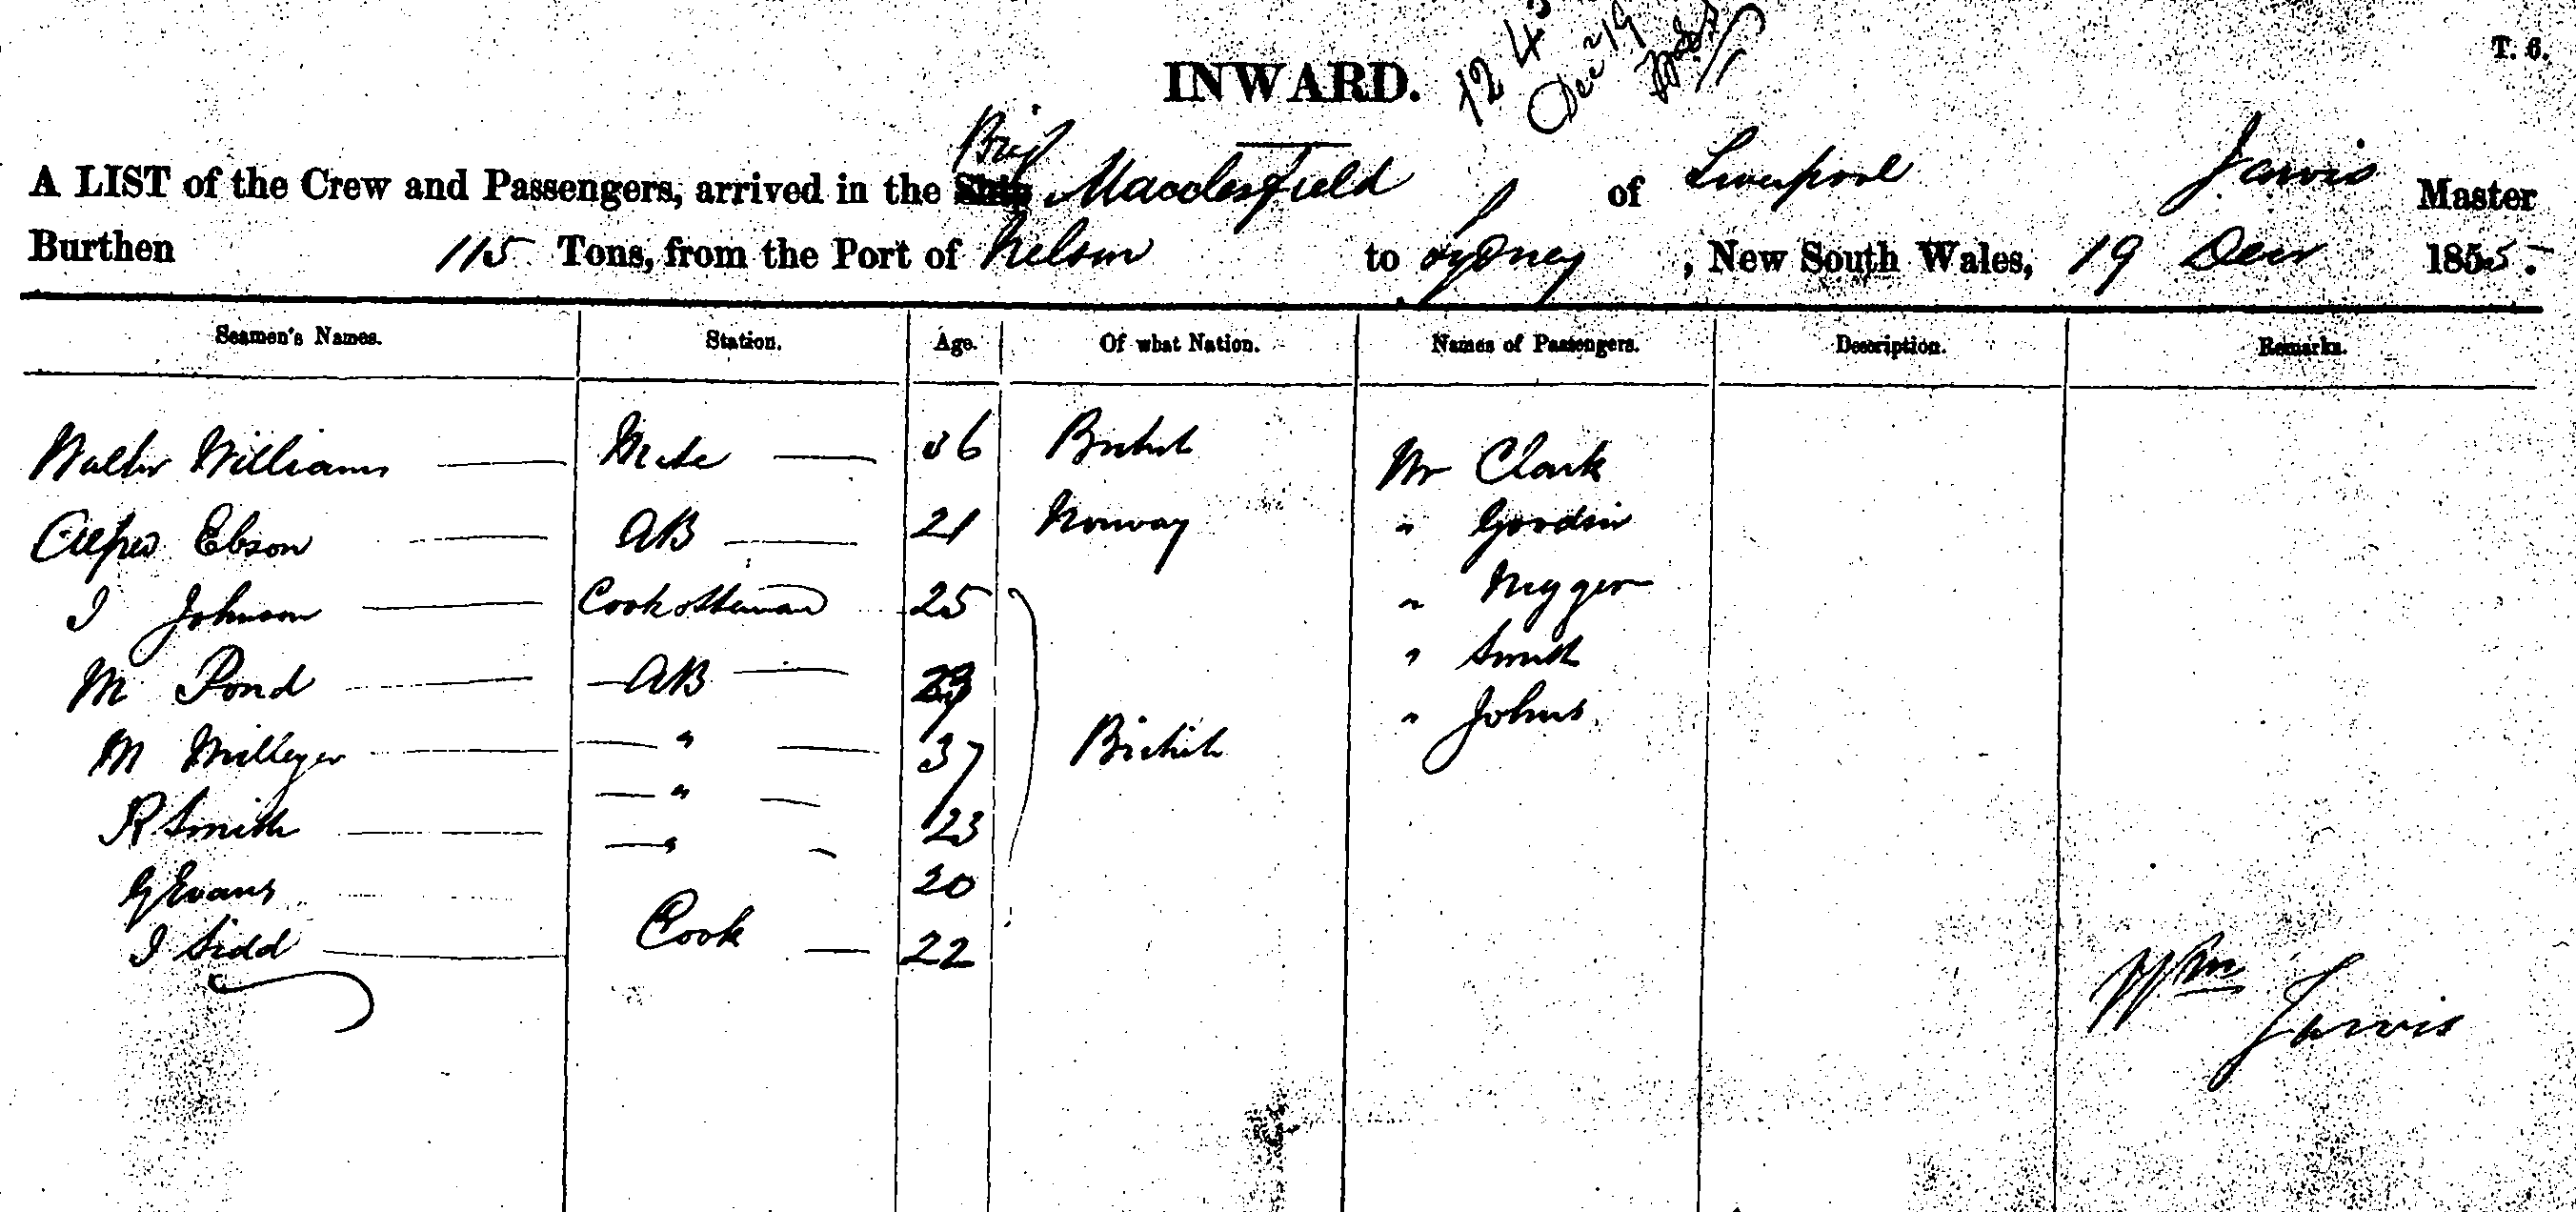 T. 6.
INWARD.
12 43
Decr 19
Brig
A LIST of the Crew and Passengers, arrived in the Ship Macclesfield of Liverpool Jarvis Master
Burthen 115 Tons, from the Port of Nelson to Sydney, New South Wales, 19 Decr 1855.
Seamen's Names. Station. Age. Of what Nation. Names of Passengers. Description. Remarks.
Walter Williams Mate 36 British Mr Clark
Alfred Ebson AB 21 Norway " Goodsir
I Johnson Cook & Steward 25 "
M Pond AB 29 " Smith
M Milleger " 37 British " Johns
R Smith " 23
G Evans " 20
I Sidd Cook 22
Wm Jarvis